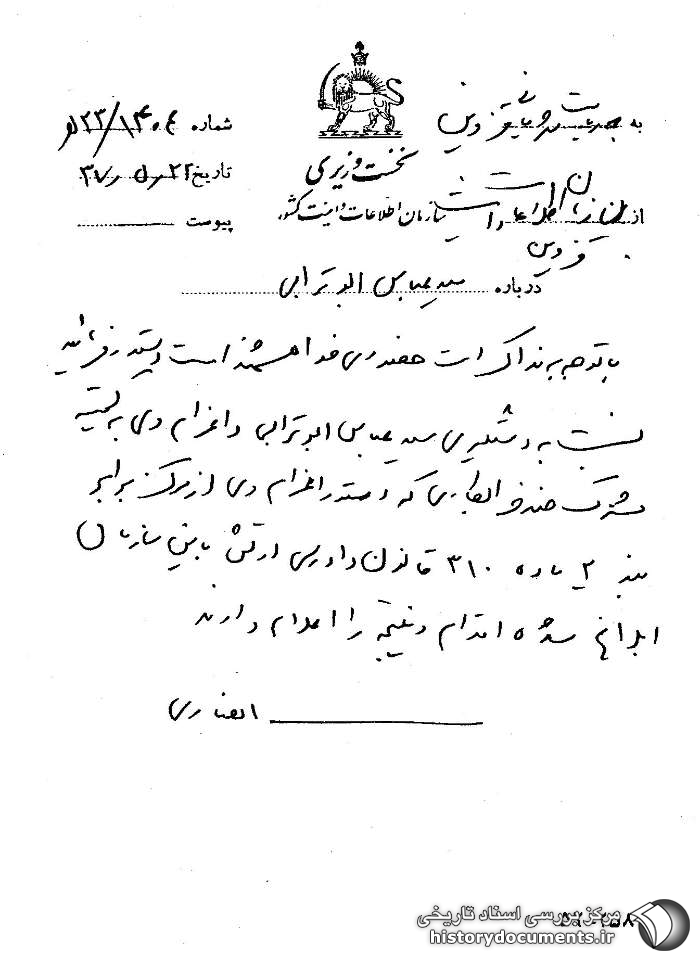 نخست وزیری
سازمان اطلاعات و امنیت کشور
به شهربانی قزوین
از سازمان اطلاعات و امنیت
قزوین
شماره ۲۳/۱۴۰۴ﻫ
تاریخ ۳۷/۵/۲۲
پیوست
درباره سید عباس ابوترابی
با توجه به مذاکرات حضوری خواهشمند است دستور فرمائید
نسبت به دستگیری سید عباس ابوترابی و اعزام وی به کمیته
مشترک ضد خرابکاری که دستور اعزام وی از مرکز برابر
بند ۲ ماده ۳۱۰ قانون دادرسی ارتش باین سازمان
ابلاغ شده اقدام و نتیجه را اعلام دارند
مرکز بررسی اسناد تاریخی
historydocuments.ir